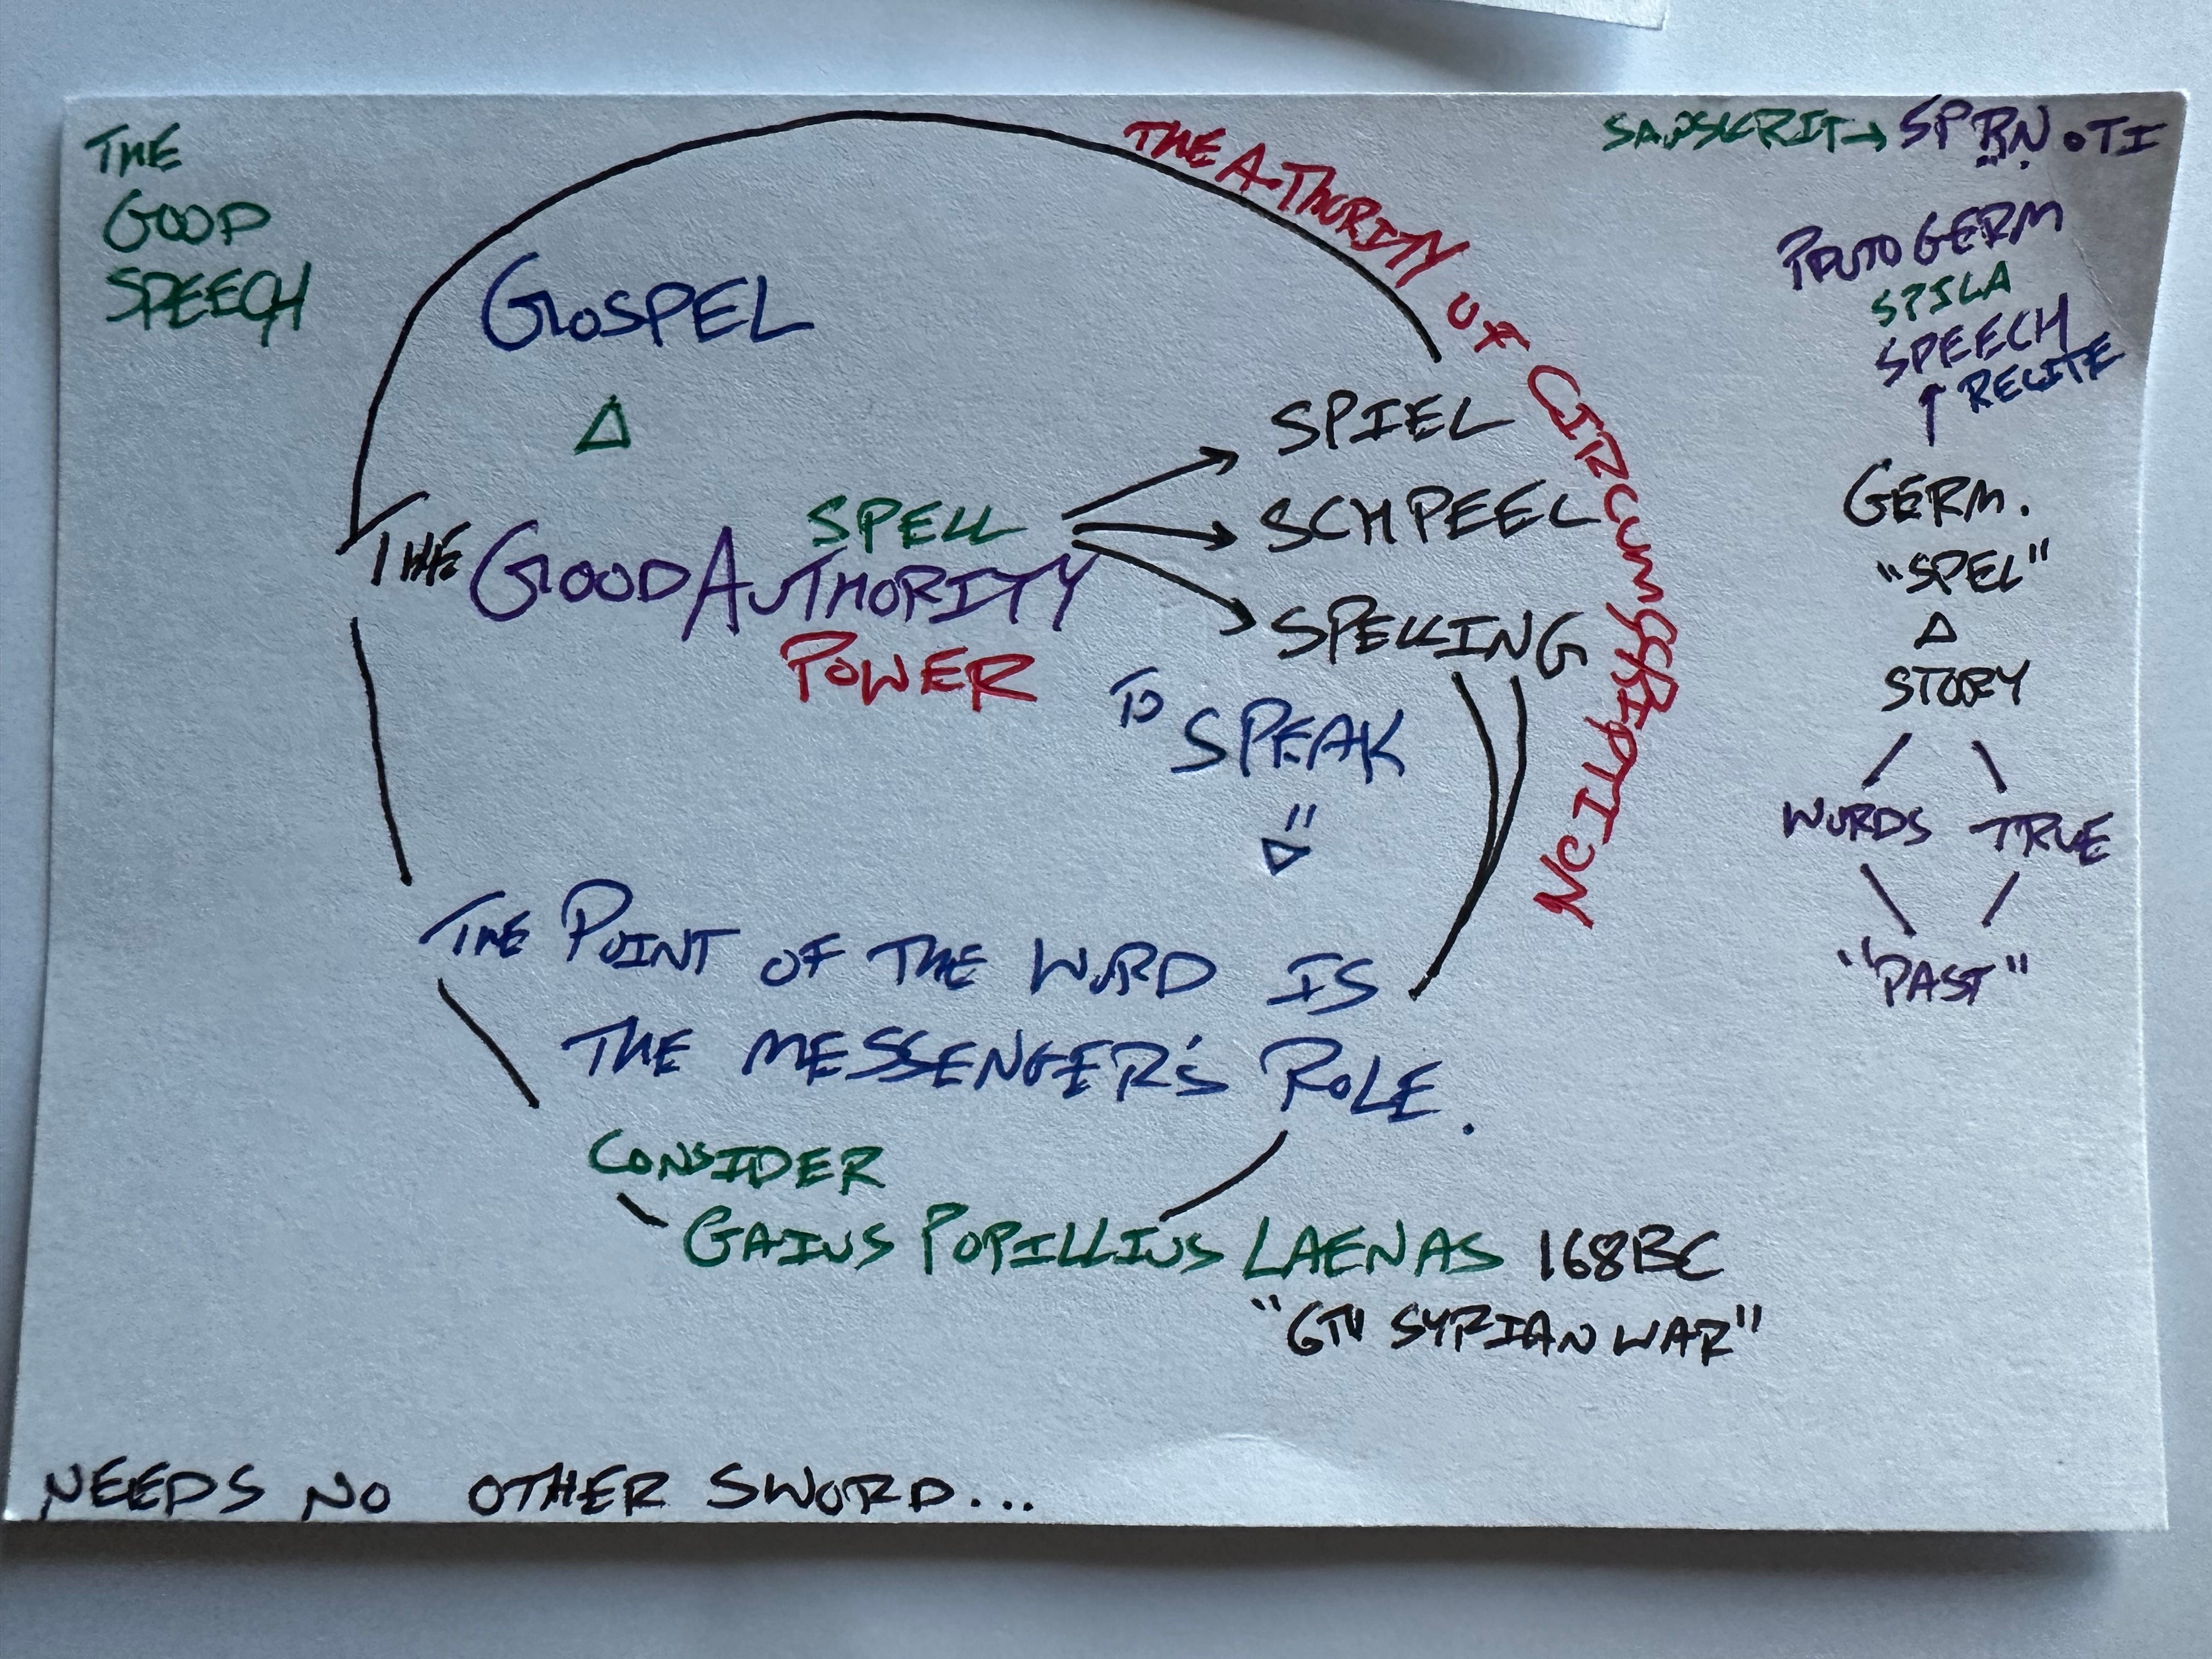 THE
GOOD
SPEECH
GOSPEL
Δ
SPELL
THE GOOD AUTHORITY
POWER
SPIEL
SCHPEEL
SPELLING
TO
SPEAK
THE POINT OF THE WORD IS
THE MESSENGER'S ROLE.
CONSIDER
GAIUS POPILLIUS LAENAS 168BC
"6TH SYRIAN WAR"
NEEDS NO OTHER SWORD...
THE A·THORITY OF CIRCUMSCRIPTION
SANSKRIT → SPṚṆOTI
PROTO GERM
SPILA
SPEECH
↑ RECITE
GERM.
"SPEL"
Δ
STORY
WORDS TRUE
"PAST"